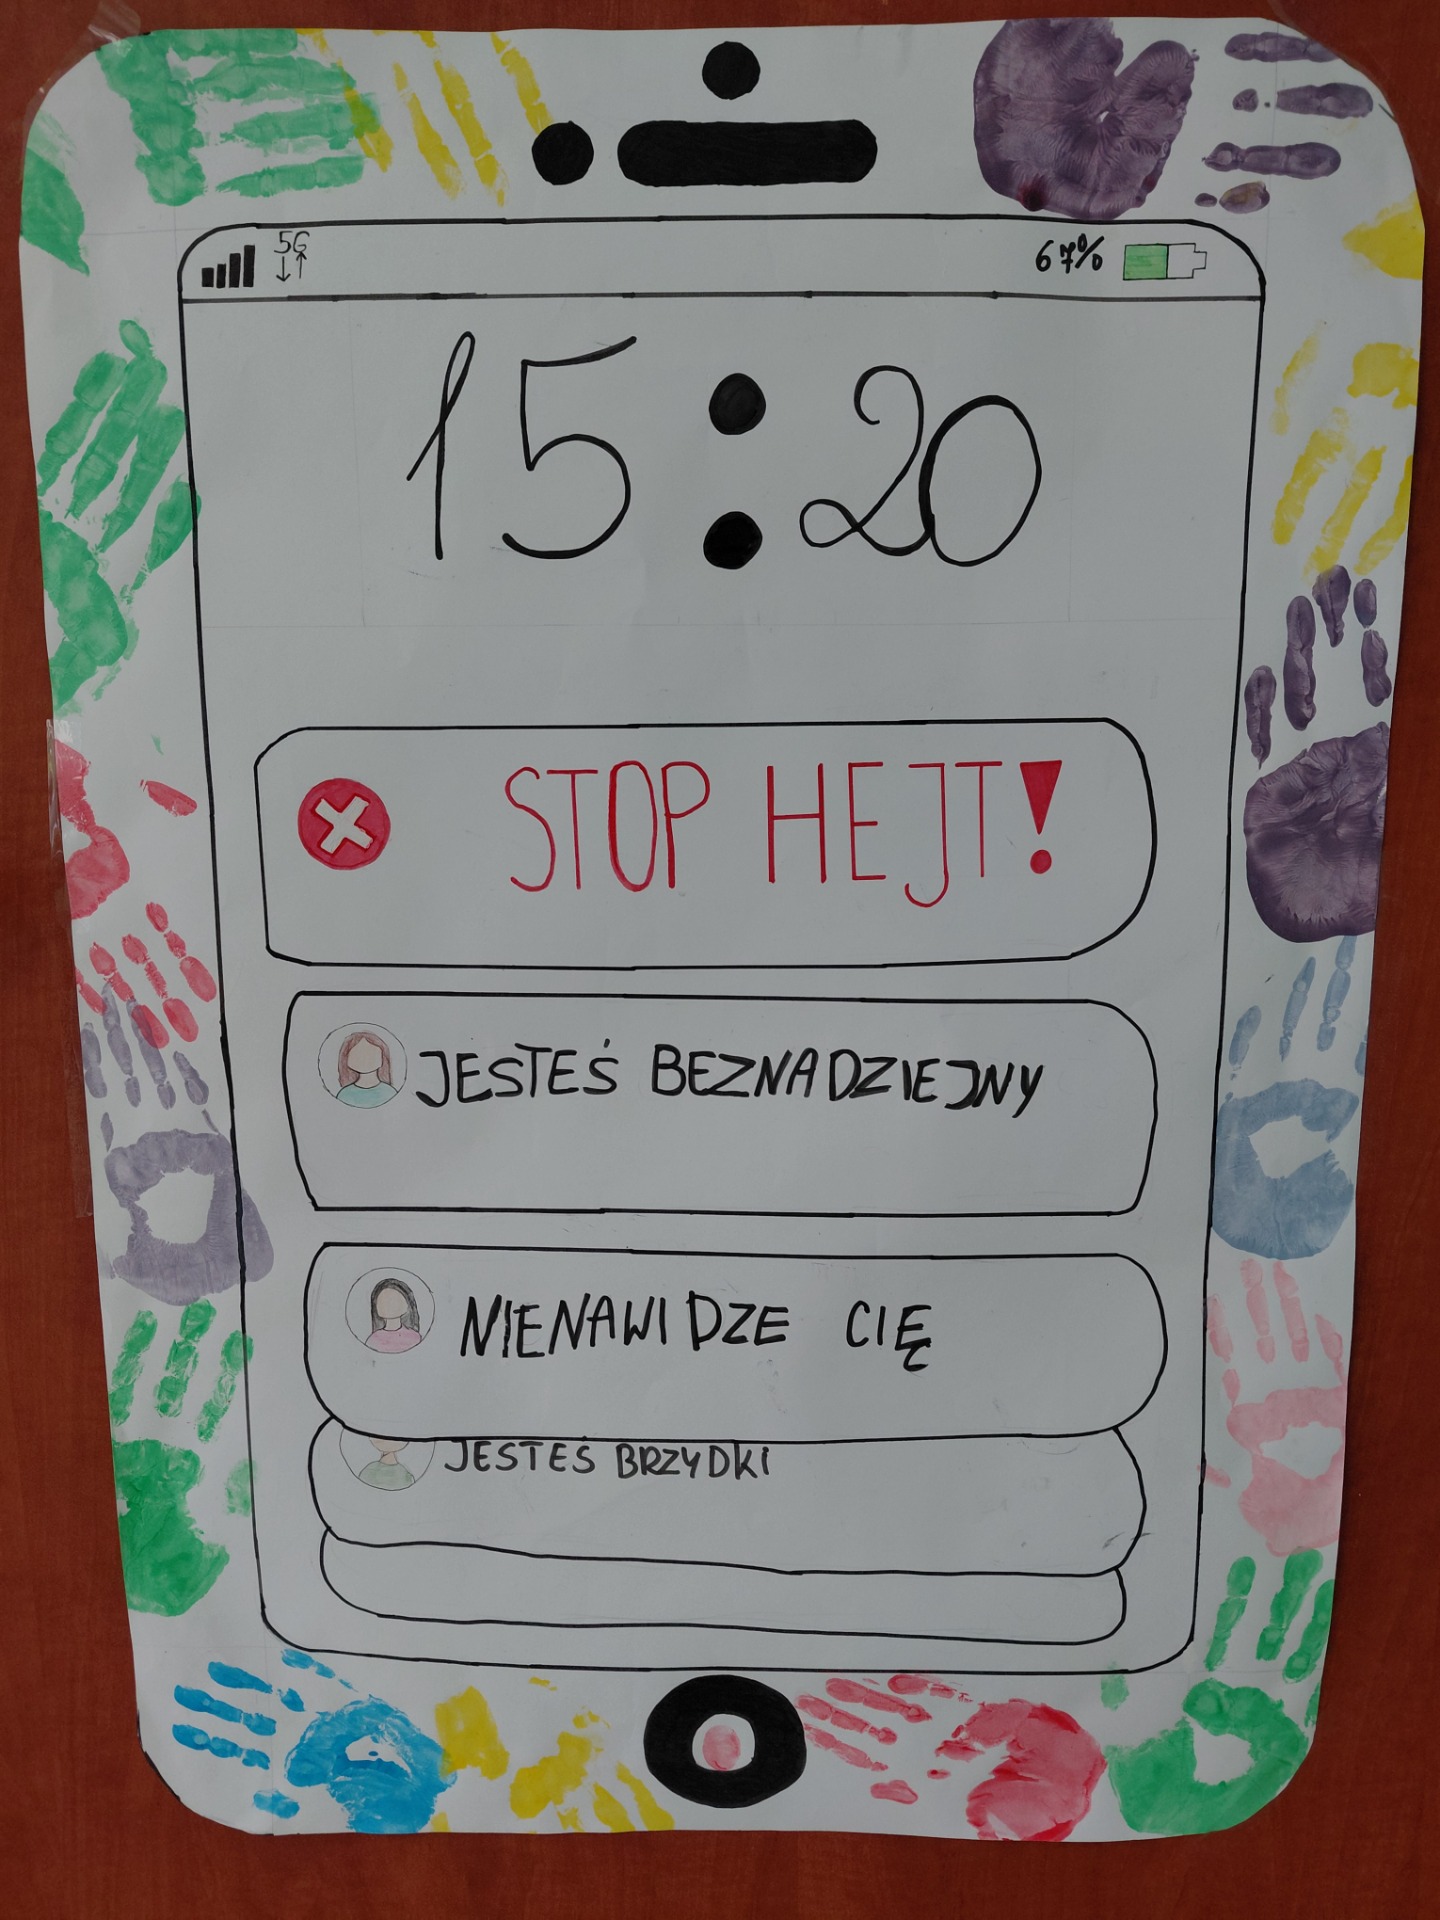 5G 67%
15:20
STOP HEJT!
JESTEŚ BEZNADZIEJNY
NIENAWIDZE CIĘ
JESTEŚ BRZYDKI